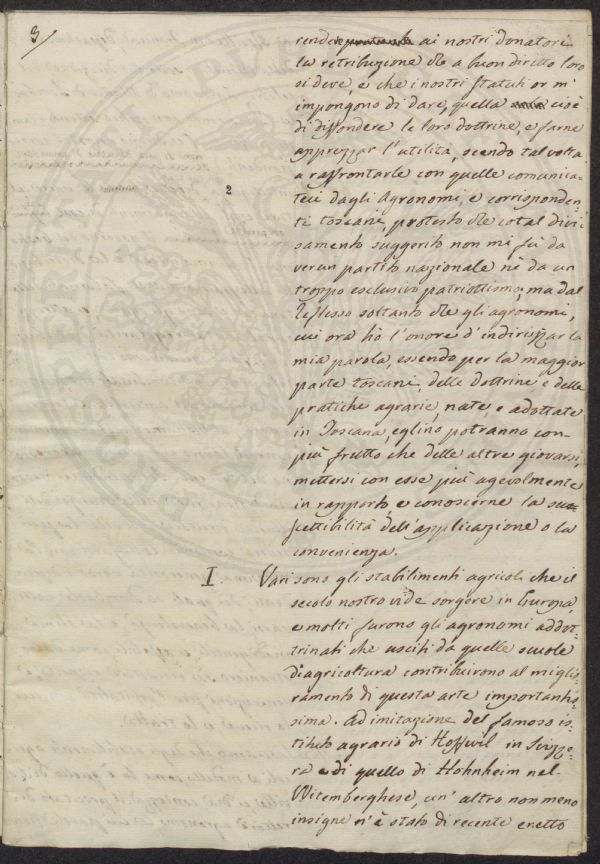 3/
rendere ai nostri donatori
la retribuzione che a buon diritto loro
si deve, e che i nostri statuti or m'
impongono di dare, quella cioè
di diffondere le loro dottrine, e farne
apprezzar l'utilità, scendo tal volta
a raffrontarle con quelle comunica-
teci dagli Agronomi, e corrisponden-
ti toscani, protesto che cotal divi-
samento suggerito non mi fù da
verun partito nazionale nè da un
troppo esclusivo patriottismo, ma dal
riflesso soltanto che gli agronomi,
cui ora hò l'onore d'indirizzar la
mia parola, essendo per la maggior
parte toscani, delle dottrine e delle
pratiche agrarie, nate, e adottate
in Toscana, eglino potranno con
più frutto che delle altre giovarsi,
mettersi con esse più agevolmente
in rapporto, e conoscerne la su-
scettibilità dell'applicazione o la
convenienza.
I. Vari sono gli stabilimenti agricoli che il
secolo nostro vide sorgere in Europa,
e molti furono gli agronomi addot-
trinati che usciti da quelle scuole
d'agricoltura contribuirono al miglio-
ramento di questa arte importantis-
sima. Ad imitazione del famoso is-
tituto agrario di Hoffwil in Svizze-
ra e di quello di Hohnheim nel
Witemberghese, un'altro non meno
insigne n'è stato di recente eretto
2